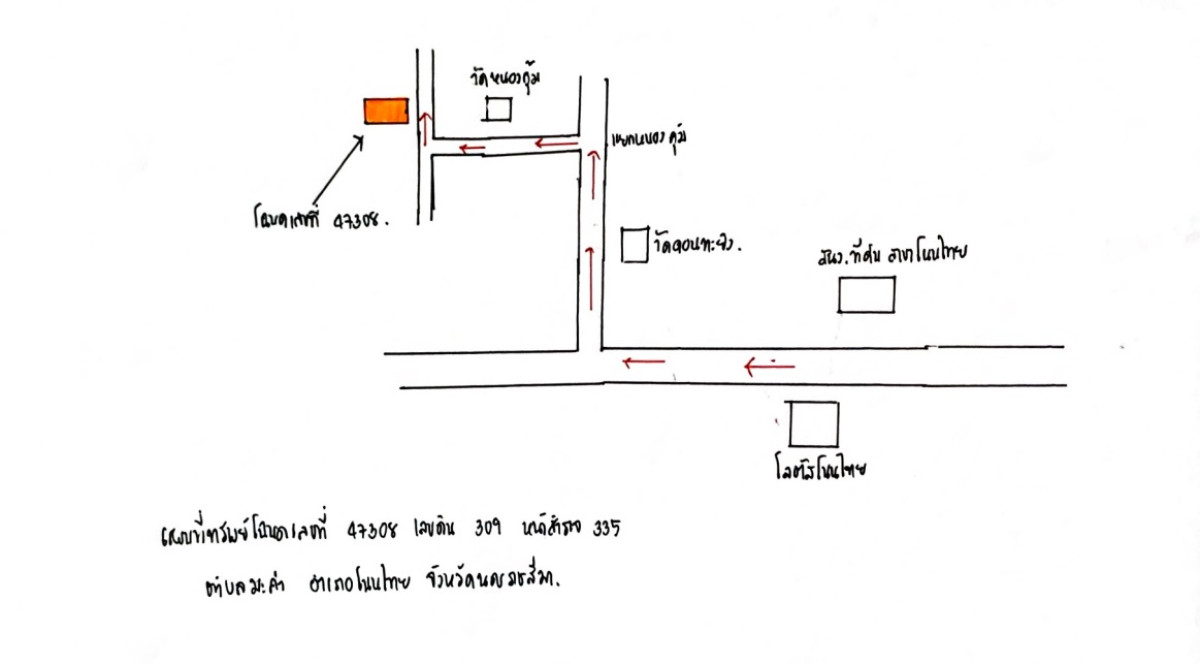 วัดหนองคุ้ม
แยกหนองคุ้ม
โฉนดเลขที่ 47308.
วัดดอนทะยิง.
สนง.ที่ดิน สาขาโนนไทย
โลตัสโนนไทย
แผนที่ทรัพย์โฉนดเลขที่ 47308 เลขดิน 309 หน้าสำรวจ 335
ตำบลมะค่า อำเภอโนนไทย จังหวัดนครราชสีมา.